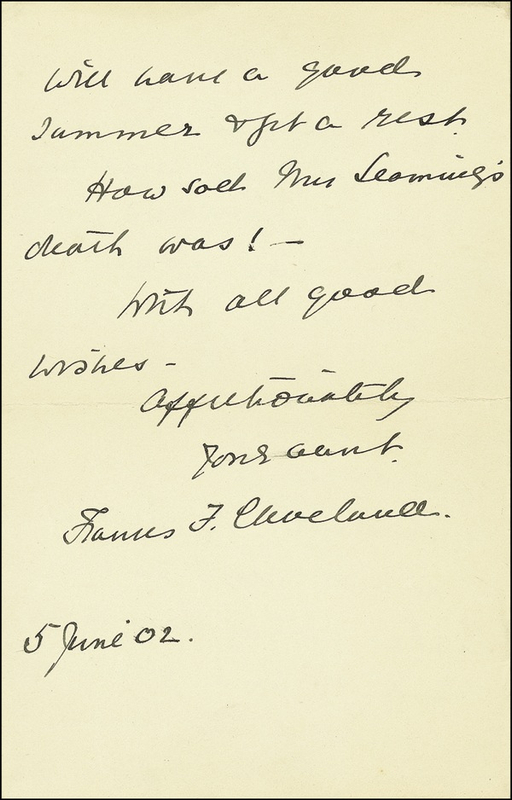 will have a good
summer & get a rest.
How sad Mrs Leaming's
death was! —
With all good
wishes -
Affectionately
Your aunt.
Frances F. Cleveland.
5 June '02.